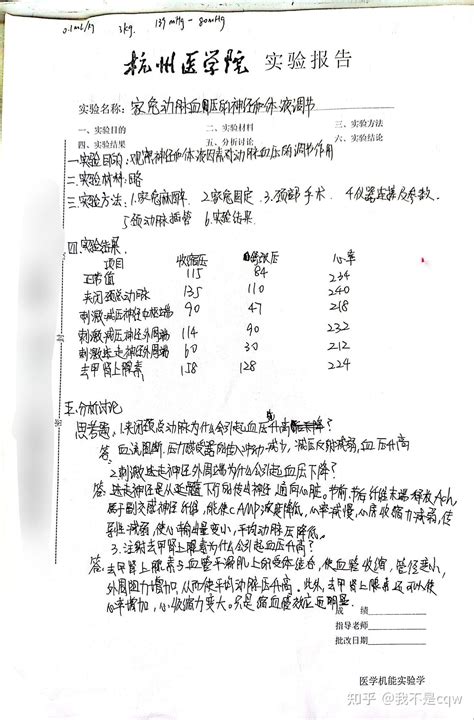 0.1mL/kg 3kg. 139 mHg - 80mHg
杭州医学院 实验报告
实验名称: 家兔动脉血压的神经和体液调节
一、实验目的 二、实验材料 三、实验方法
四、实验结果 五、分析讨论 六、实验结论
一实验目的:观察神经和体液因素对动脉血压的调节作用
二实验材料:略
三实验方法:1.家兔麻醉 2家兔固定 3.颈部手术 4仪器连接及参数
5颈动脉插管 6.实验结果
四.实验结果
项目 收缩压 舒张压 心率
正常值 115 84 234
夹闭颈总动脉 135 110 240
刺激减压神经 90 47 218
刺激减压神经外周端 114 90 232
刺激迷走神经外周端 60 30 212
去甲肾上腺素 158 128 224
五.分析讨论
思考题:1.夹闭颈总动脉为什么会引起血压升高
答:血流阻断.压力感受器的传入冲动减少,减压反射减弱,血压升高
2.刺激迷走神经外周端为什么会引起血压下降?
答:迷走神经是从延髓下行的传出神经,通向心脏。节前.节后纤维末梢释放Ach,
属于副交感神经纤维,能使cAMP浓度降低,心率减慢,心房收缩力减弱,传
导性减弱,使心输出量变小,平均动脉压降低。
3.注射去甲肾上腺素为什么会引起血压升高?
答:去甲肾上腺素与血管平滑肌上的受体结合,使血管收缩,管径变小,
外周阻力增加,从而使平均动脉压升高。此外,去甲肾上腺素还可以使
心率增加,心收缩力变大。只是缩血管效应更明显.
成 绩
指导老师
批改日期
医学机能实验学
知乎 @我不是cqw